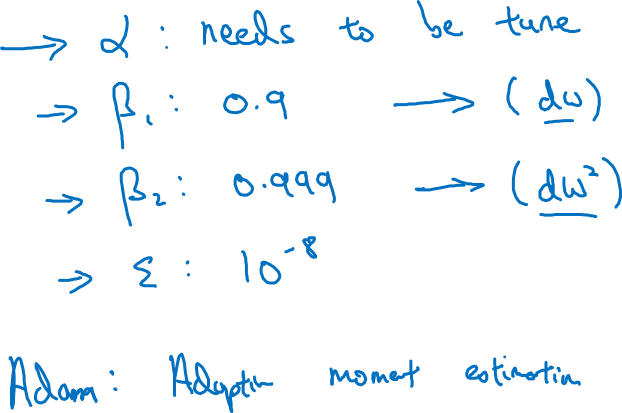 → α : needs to be tune
→ β₁ : 0.9 → (dw)
→ β₂ : 0.999 → (dw²)
→ ε : 10⁻⁸
Adam : Adaptin moment estimation